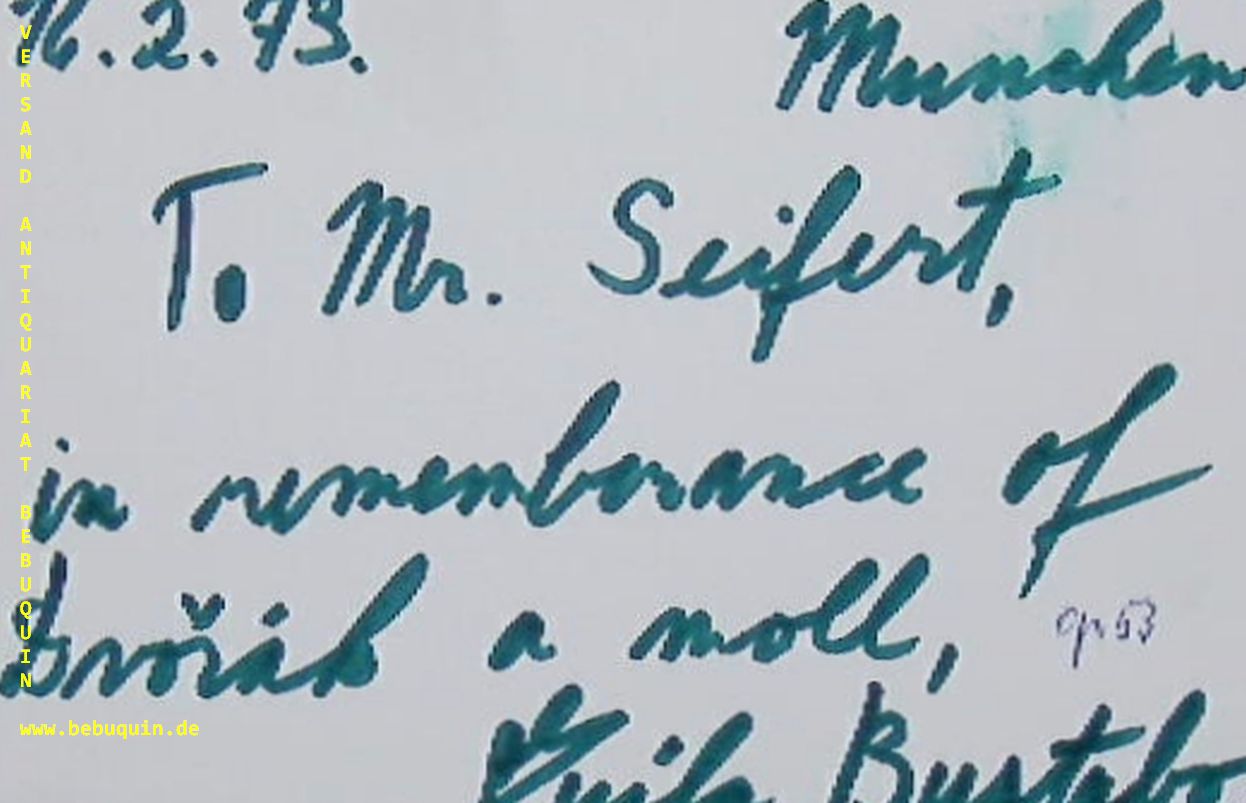 16.2.73. München
To Mr. Seifert,
in rememberance of
Dvořák a moll, op 53
Guila Bustabo
VERSAND ANTIQUARIAT BEBUQUIN
www.bebuquin.de